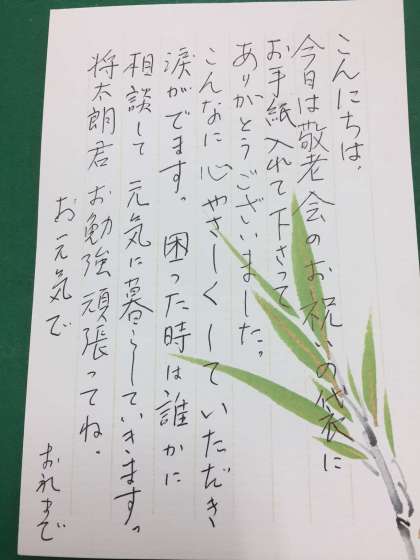 こんにちは。
今日は敬老会のお祝いの袋に
お手紙入れて下さって
ありがとうございました。
こんなに心やさしくしていただき
涙がでます。困った時は誰かに
相談して元気に暮らしていきます。
将太朗君お勉強頑張ってね。
お元気で
お礼まで